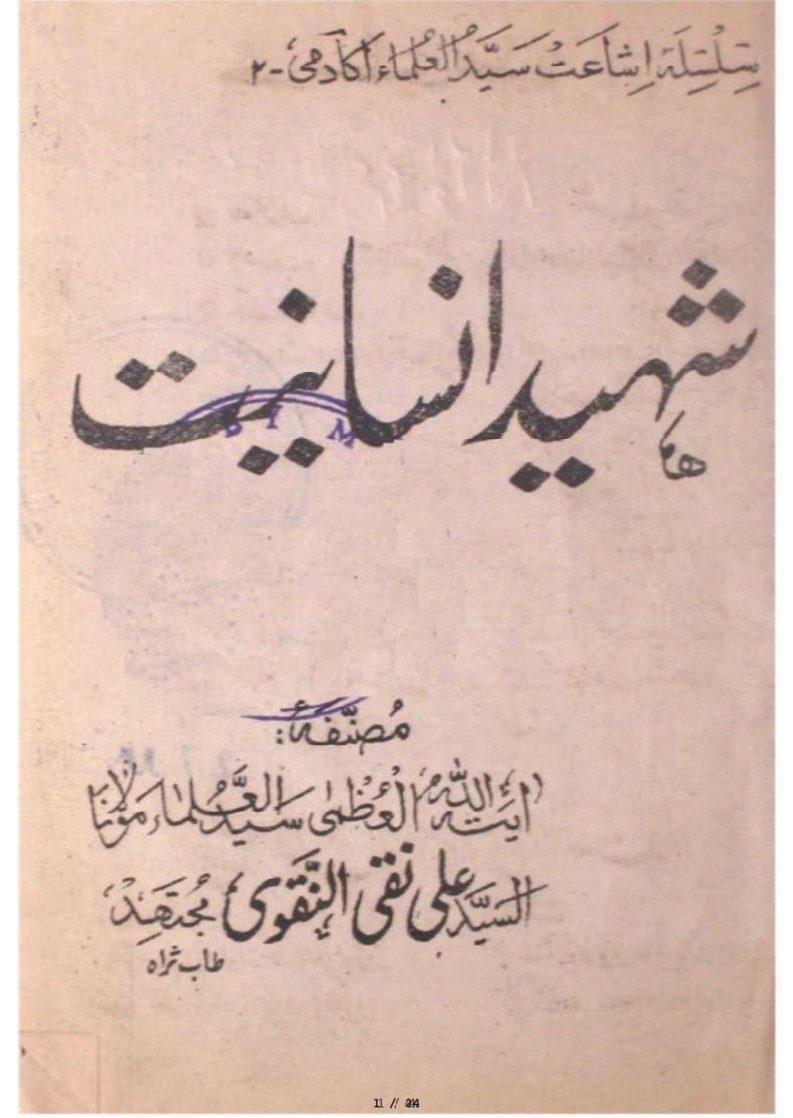 سِلْسِلَۂ اِشاعَتْ سَیَّدُ العُلماء اکادمی -۲
شہید انسانیت
مُصنَّفہٗ:
آیتہ اللہُ العُظمٰی سَیَّدُ العُلماء مَولانا
السیَّد علی نقی النَّقوی مُجتَھِدْ
طاب ثراہ